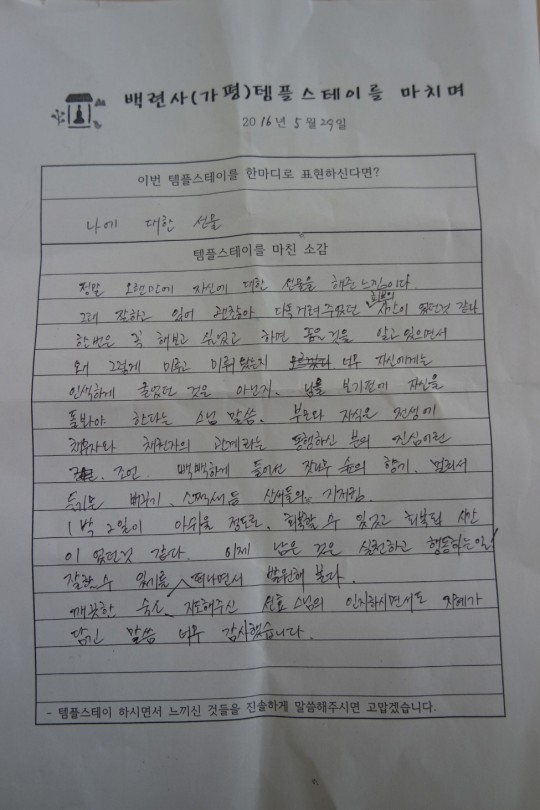 백련사(가평)템플스테이를 마치며
2016년 5월 29일
이번 템플스테이를 한마디로 표현하신다면?
나에 대한 선물
템플스테이를 마친 소감
정말 오랜만에 자신에 대한 선물을 해준 느낌이다
그래 잘하고 있어 괜찮아 다독거려 주었던 시간이 되었던것 같다
한번은 꼭 해보고 싶었고 하면 좋은것을 알고 있으면서
왜 그렇게 미루고 미뤄 왔는지 너무 자신에게는
인색하게 굴었던 것은 아닌지. 남을 보기전에 자신을
돌봐야 한다는 스님 말씀. 부모와 자식은 전생에
채무자와 채권자의 관계라는 동행하신 분의 진심어린
조언. 빽빽하게 들어선 잣나무 숲의 향기. 멀리서
들리는 뻐꾸기, 소쩍새등 산새들의 지저귐.
1박 2일이 아쉬울 정도로. 회복할 수 있었고 회복된 시간
이 었던것 같다. 이제 남은 것은 실천하고 행동하는일!
잘할수 있기를 떠나면서 발원해 본다.
깨끗한 숙소, 지도해주신 스님의 인자하시면서도 지혜가
담긴 말씀 너무 감사했습니다.
- 템플스테이 하시면서 느끼신 것들을 진솔하게 말씀해주시면 고맙겠습니다.